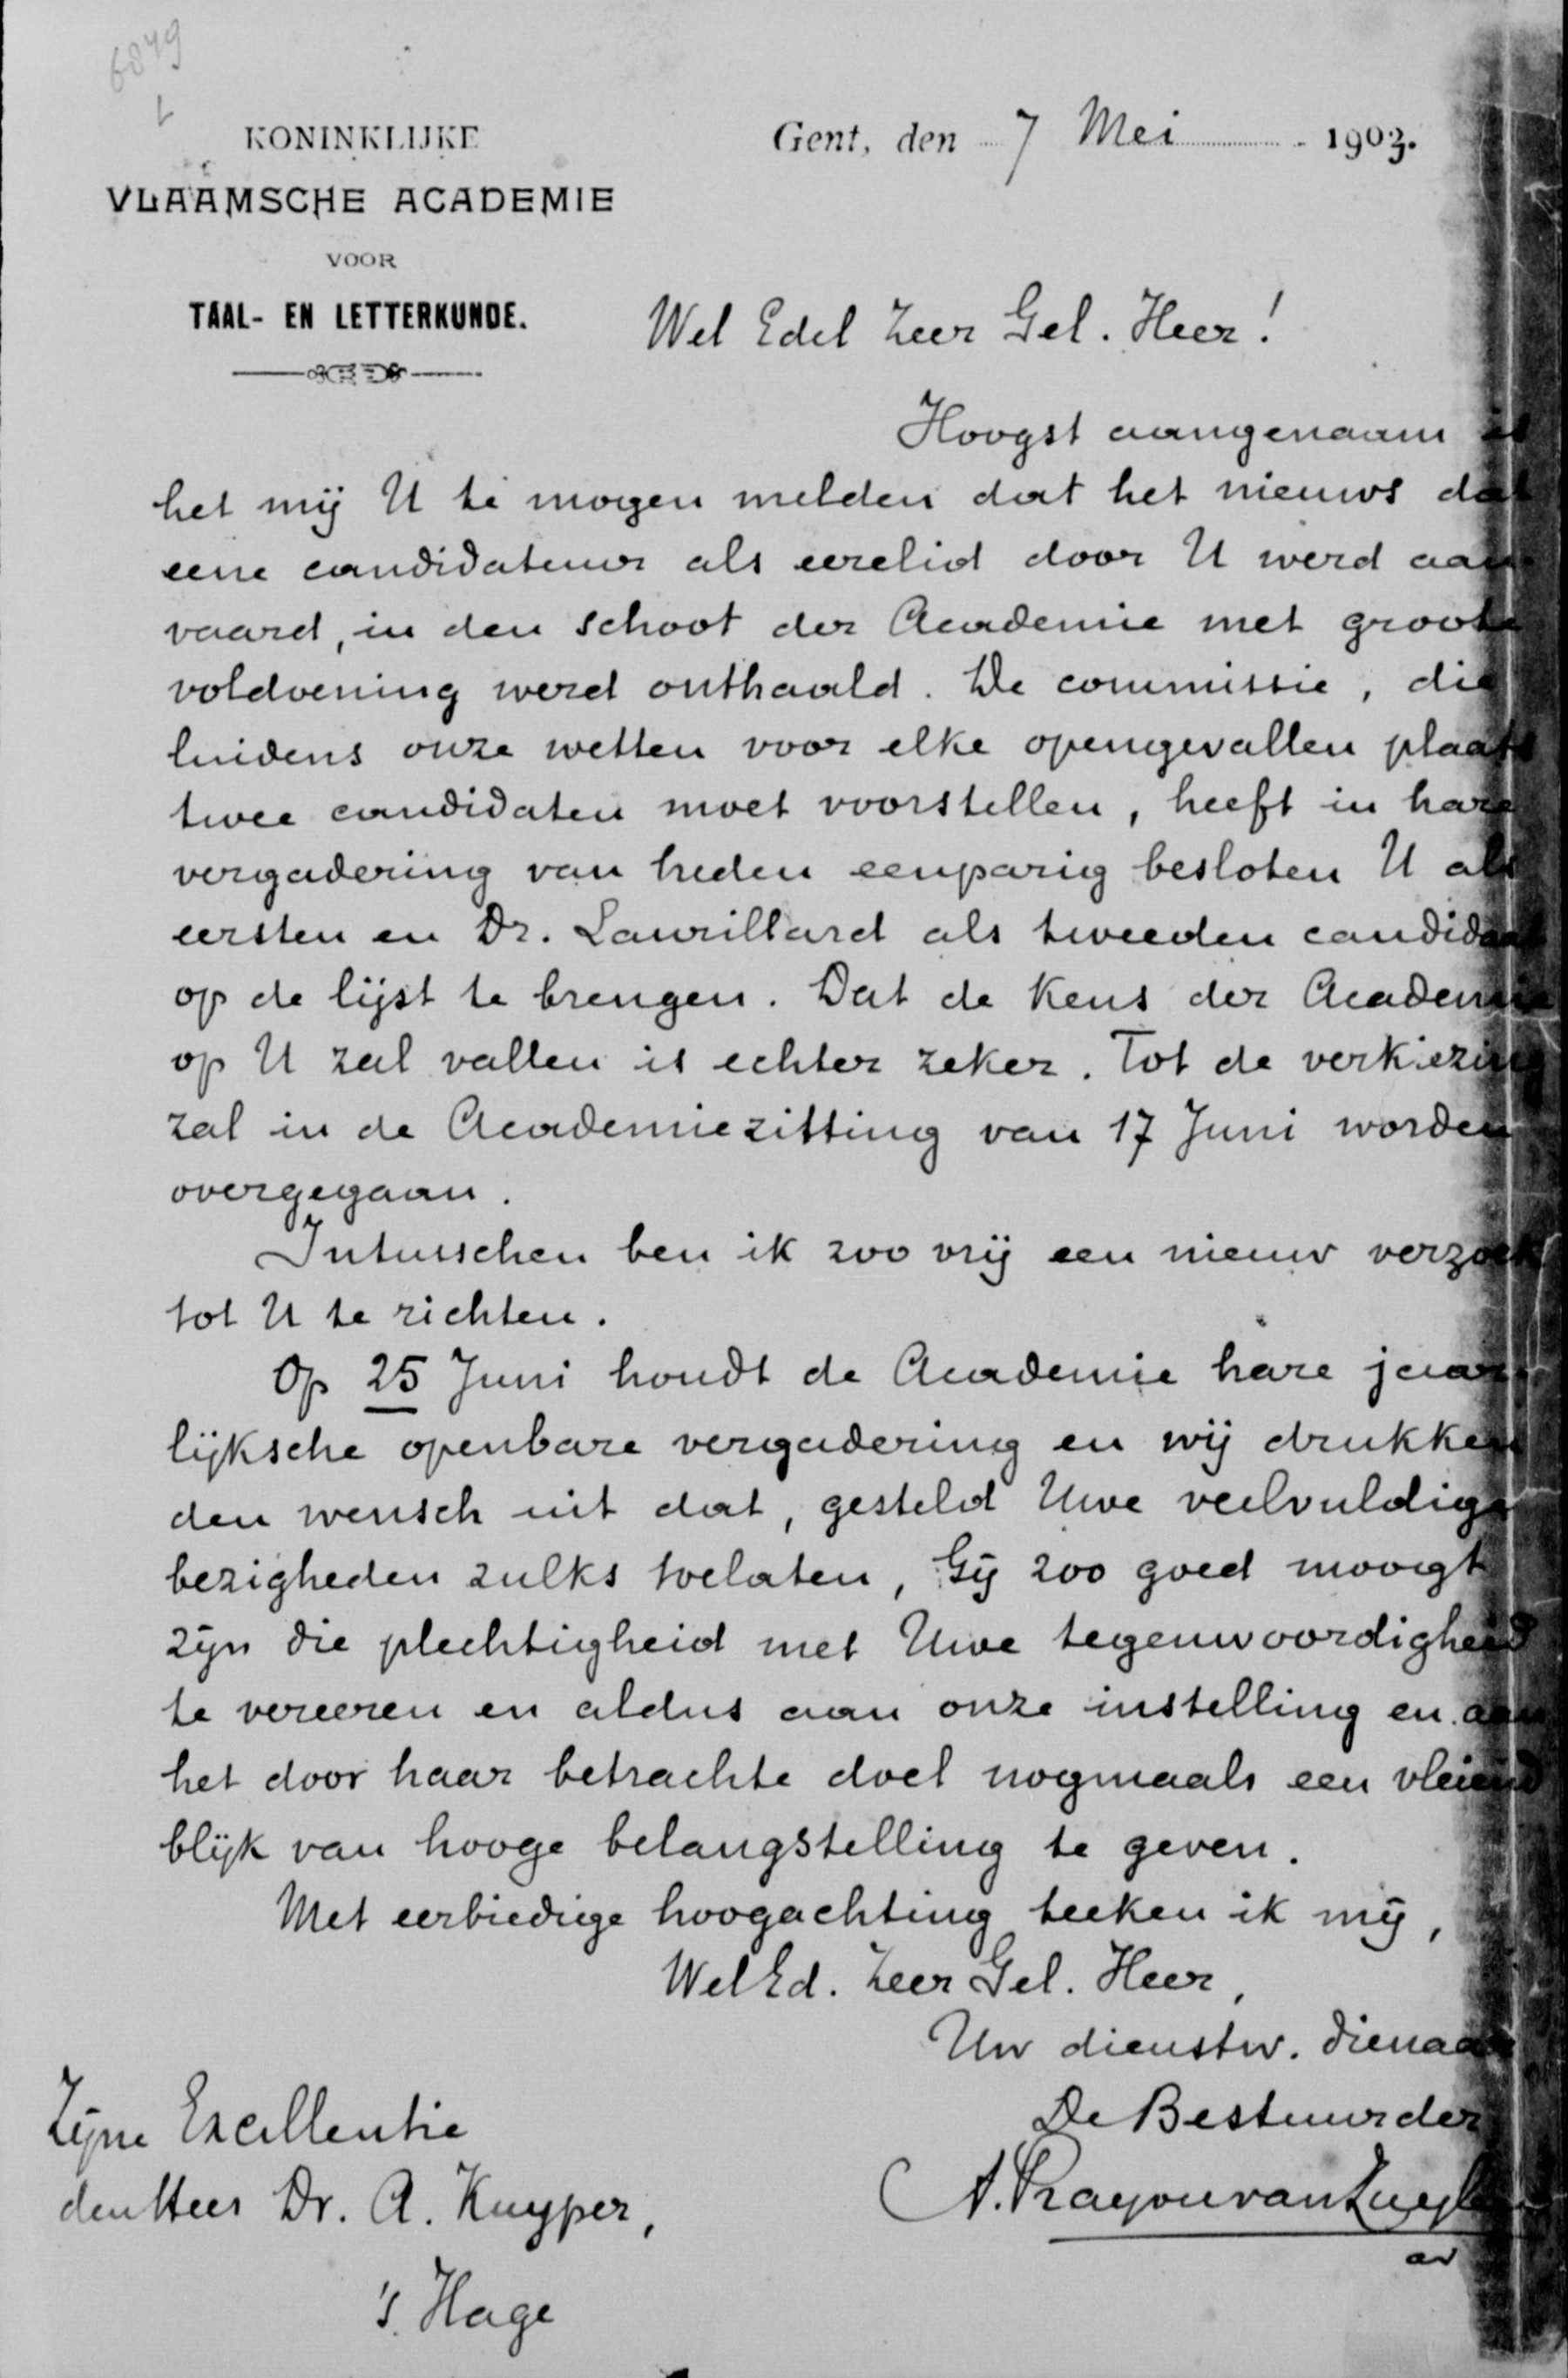 6849
L
KONINKLIJKE
VLAAMSCHE ACADEMIE
VOOR
TAAL- EN LETTERKUNDE.
Gent, den 7 Mei 1903.
Wel Edel Zeer Gel. Heer!
Hoogst aangenaam is
het mij U te mogen melden dat het nieuws dat
eene candidatuur als eerelid door U werd aan-
vaard, in den schoot der Academie met groote
voldoening werd onthaald. De commissie, die
luidens onze wetten voor elke opengevallen plaats
twee candidaten moet voorstellen, heeft in hare
vergadering van heden eenparig besloten U als
eersten en Dr. Laurillard als tweeden candidaat
op de lijst te brengen. Dat de keus der Academie
op U zal vallen is echter zeker. Tot de verkiezing
zal in de Academiezitting van 17 Juni worden
overgegaan.
Intusschen ben ik zoo vrij een nieuw verzoek
tot U te richten.
Op 25 Juni houdt de Academie hare jaar-
lijksche openbare vergadering en wij drukken
den wensch uit dat, gesteld Uwe veelvuldige
bezigheden zulks toelaten, Gij zoo goed moogt
zijn die plechtigheid met Uwe tegenwoordigheid
te vereeren en aldus aan onze instelling en aan
het door haar betrachte doel nogmaals een vleiend
blijk van hooge belangstelling te geven.
Met eerbiedige hoogachting teeken ik mij,
Wel Ed. Zeer Gel. Heer,
Uw dienstw. dienaar
De Bestuurder
A. Prayon van Zuylen
Zijne Excellentie
den Heer Dr. A. Kuyper,
's Hage